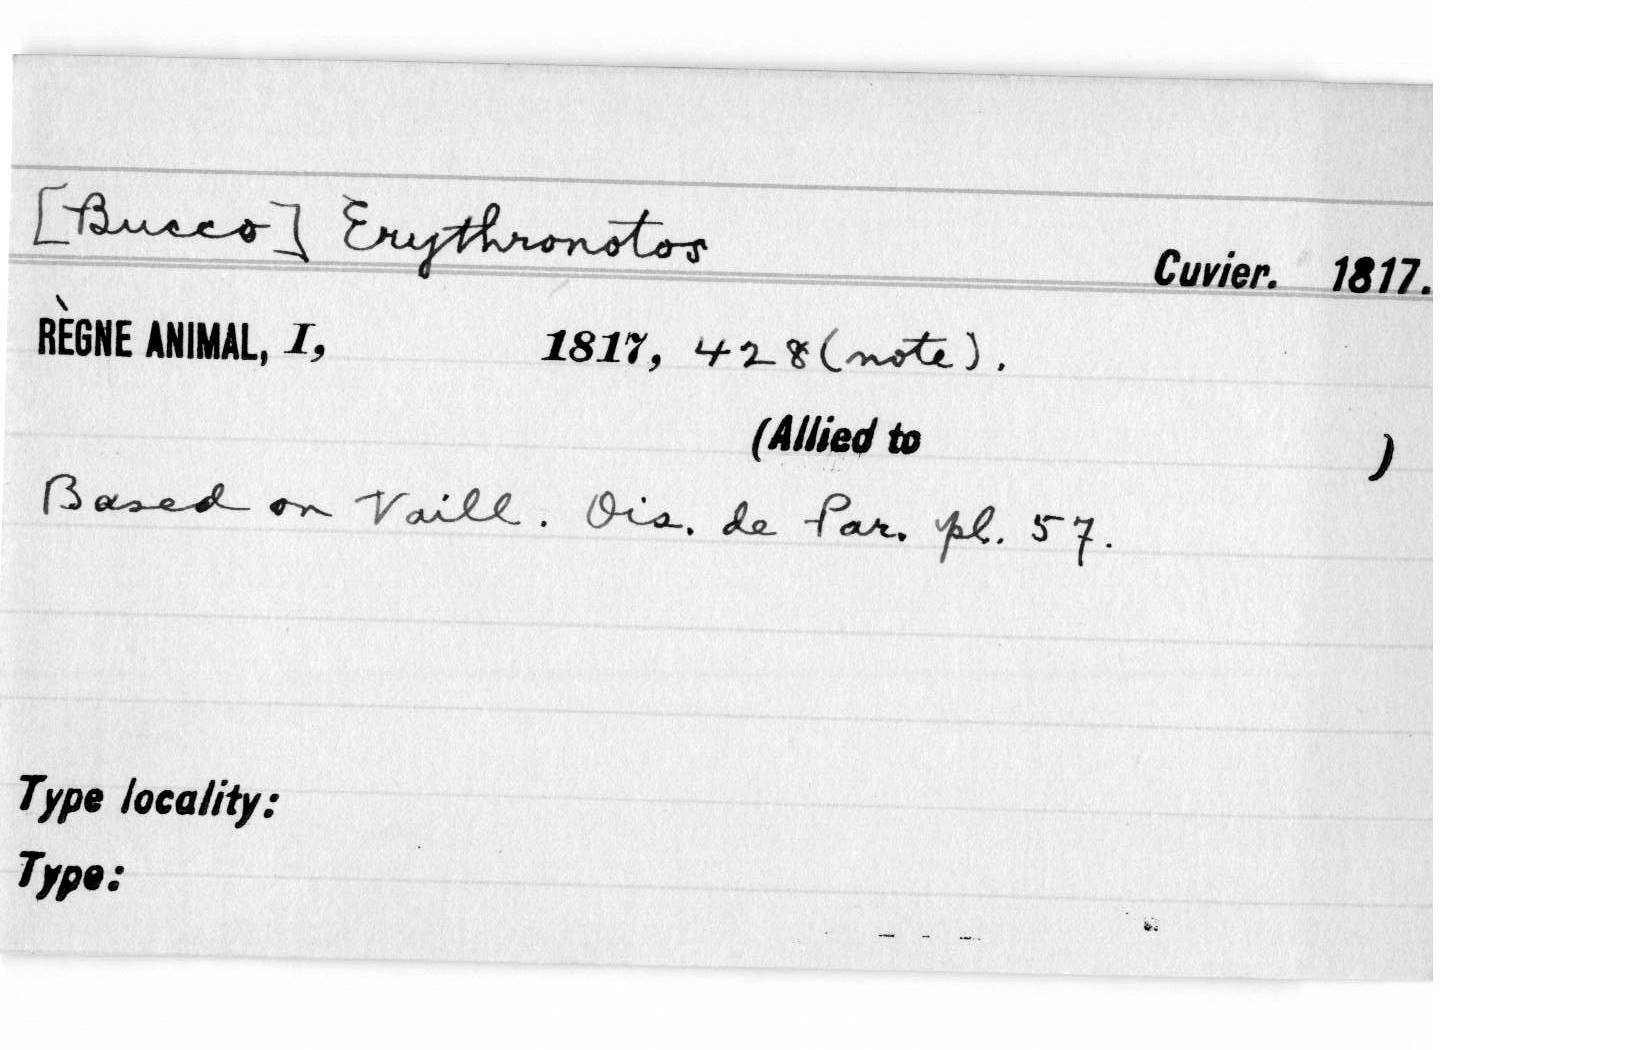 [Bucco] Erythronotos
Cuvier. 1817.
RÈGNE ANIMAL, I, 1817, 428 (note).
(Allied to )
Based on Vaill. Ois. de Par. pl. 57.
Type locality:
Type: